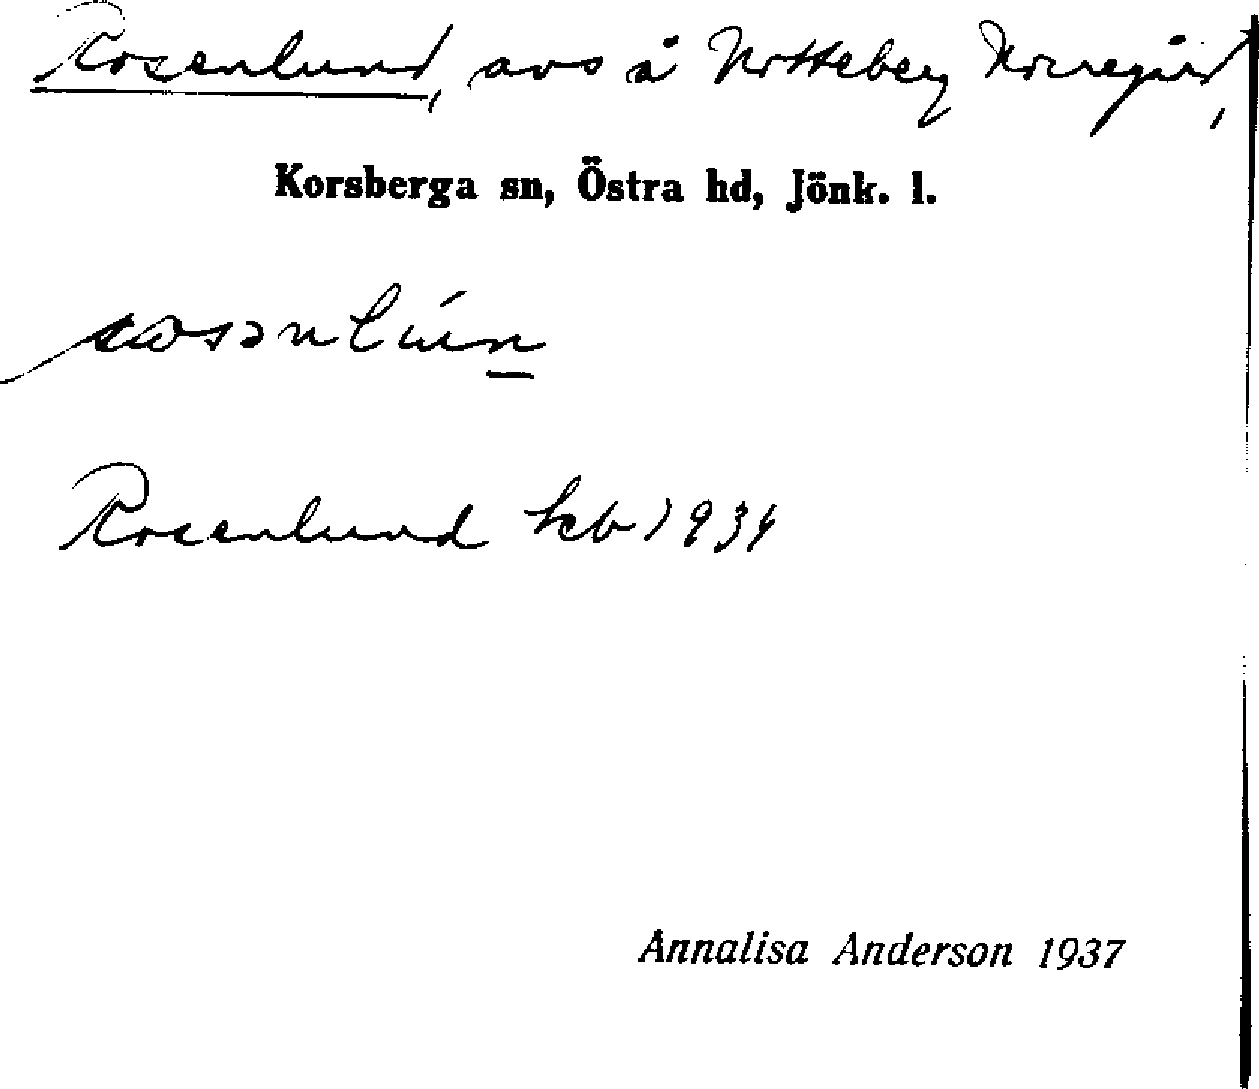 Rosenlund, avs å Notteberg Norregård,
Korsberga sn, Östra hd, Jönk. l.
Rosenlund kb 1934
Annalisa Anderson 1937